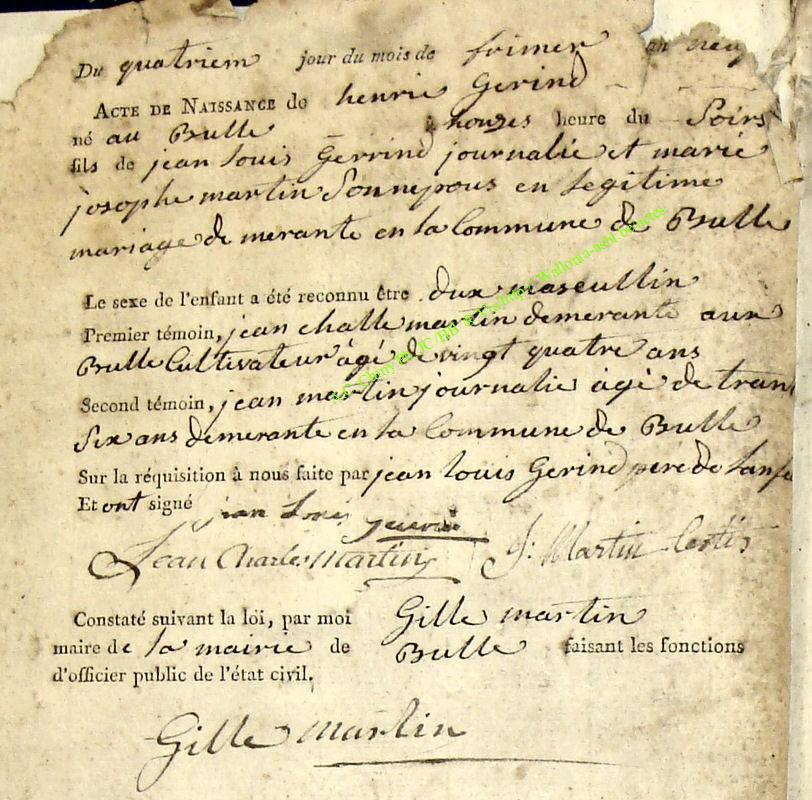 Du quatriem jour du mois de frimer an neuf
ACTE DE NAISSANCE de henrie Gerind
né au Bulle à honzes heure du Soirs
fils de jean Louis Gerrind journalie et marie
josophe martin Sonnepous en Legitime
mariage de merante en la Commune de Bulle
Le sexe de l'enfant a été reconnu être dux mascullin
Premier témoin, jean challe martin demerante aux
Bulle Cultivateur âgé de vingt quatre ans
Second témoin, jean martin journalie agé de trant
Six ans demerante en la Commune de Bulle
Sur la réquisition à nous faite par jean Louis Gerind pere de Lanfa
Et ont signé jean Louis
Jean Charles Martin J: Martin
Constaté suivant la loi, par moi Gille martin
maire de la mairie de Bulle faisant les fonctions
d'officier public de l'état civil.
Gille martin